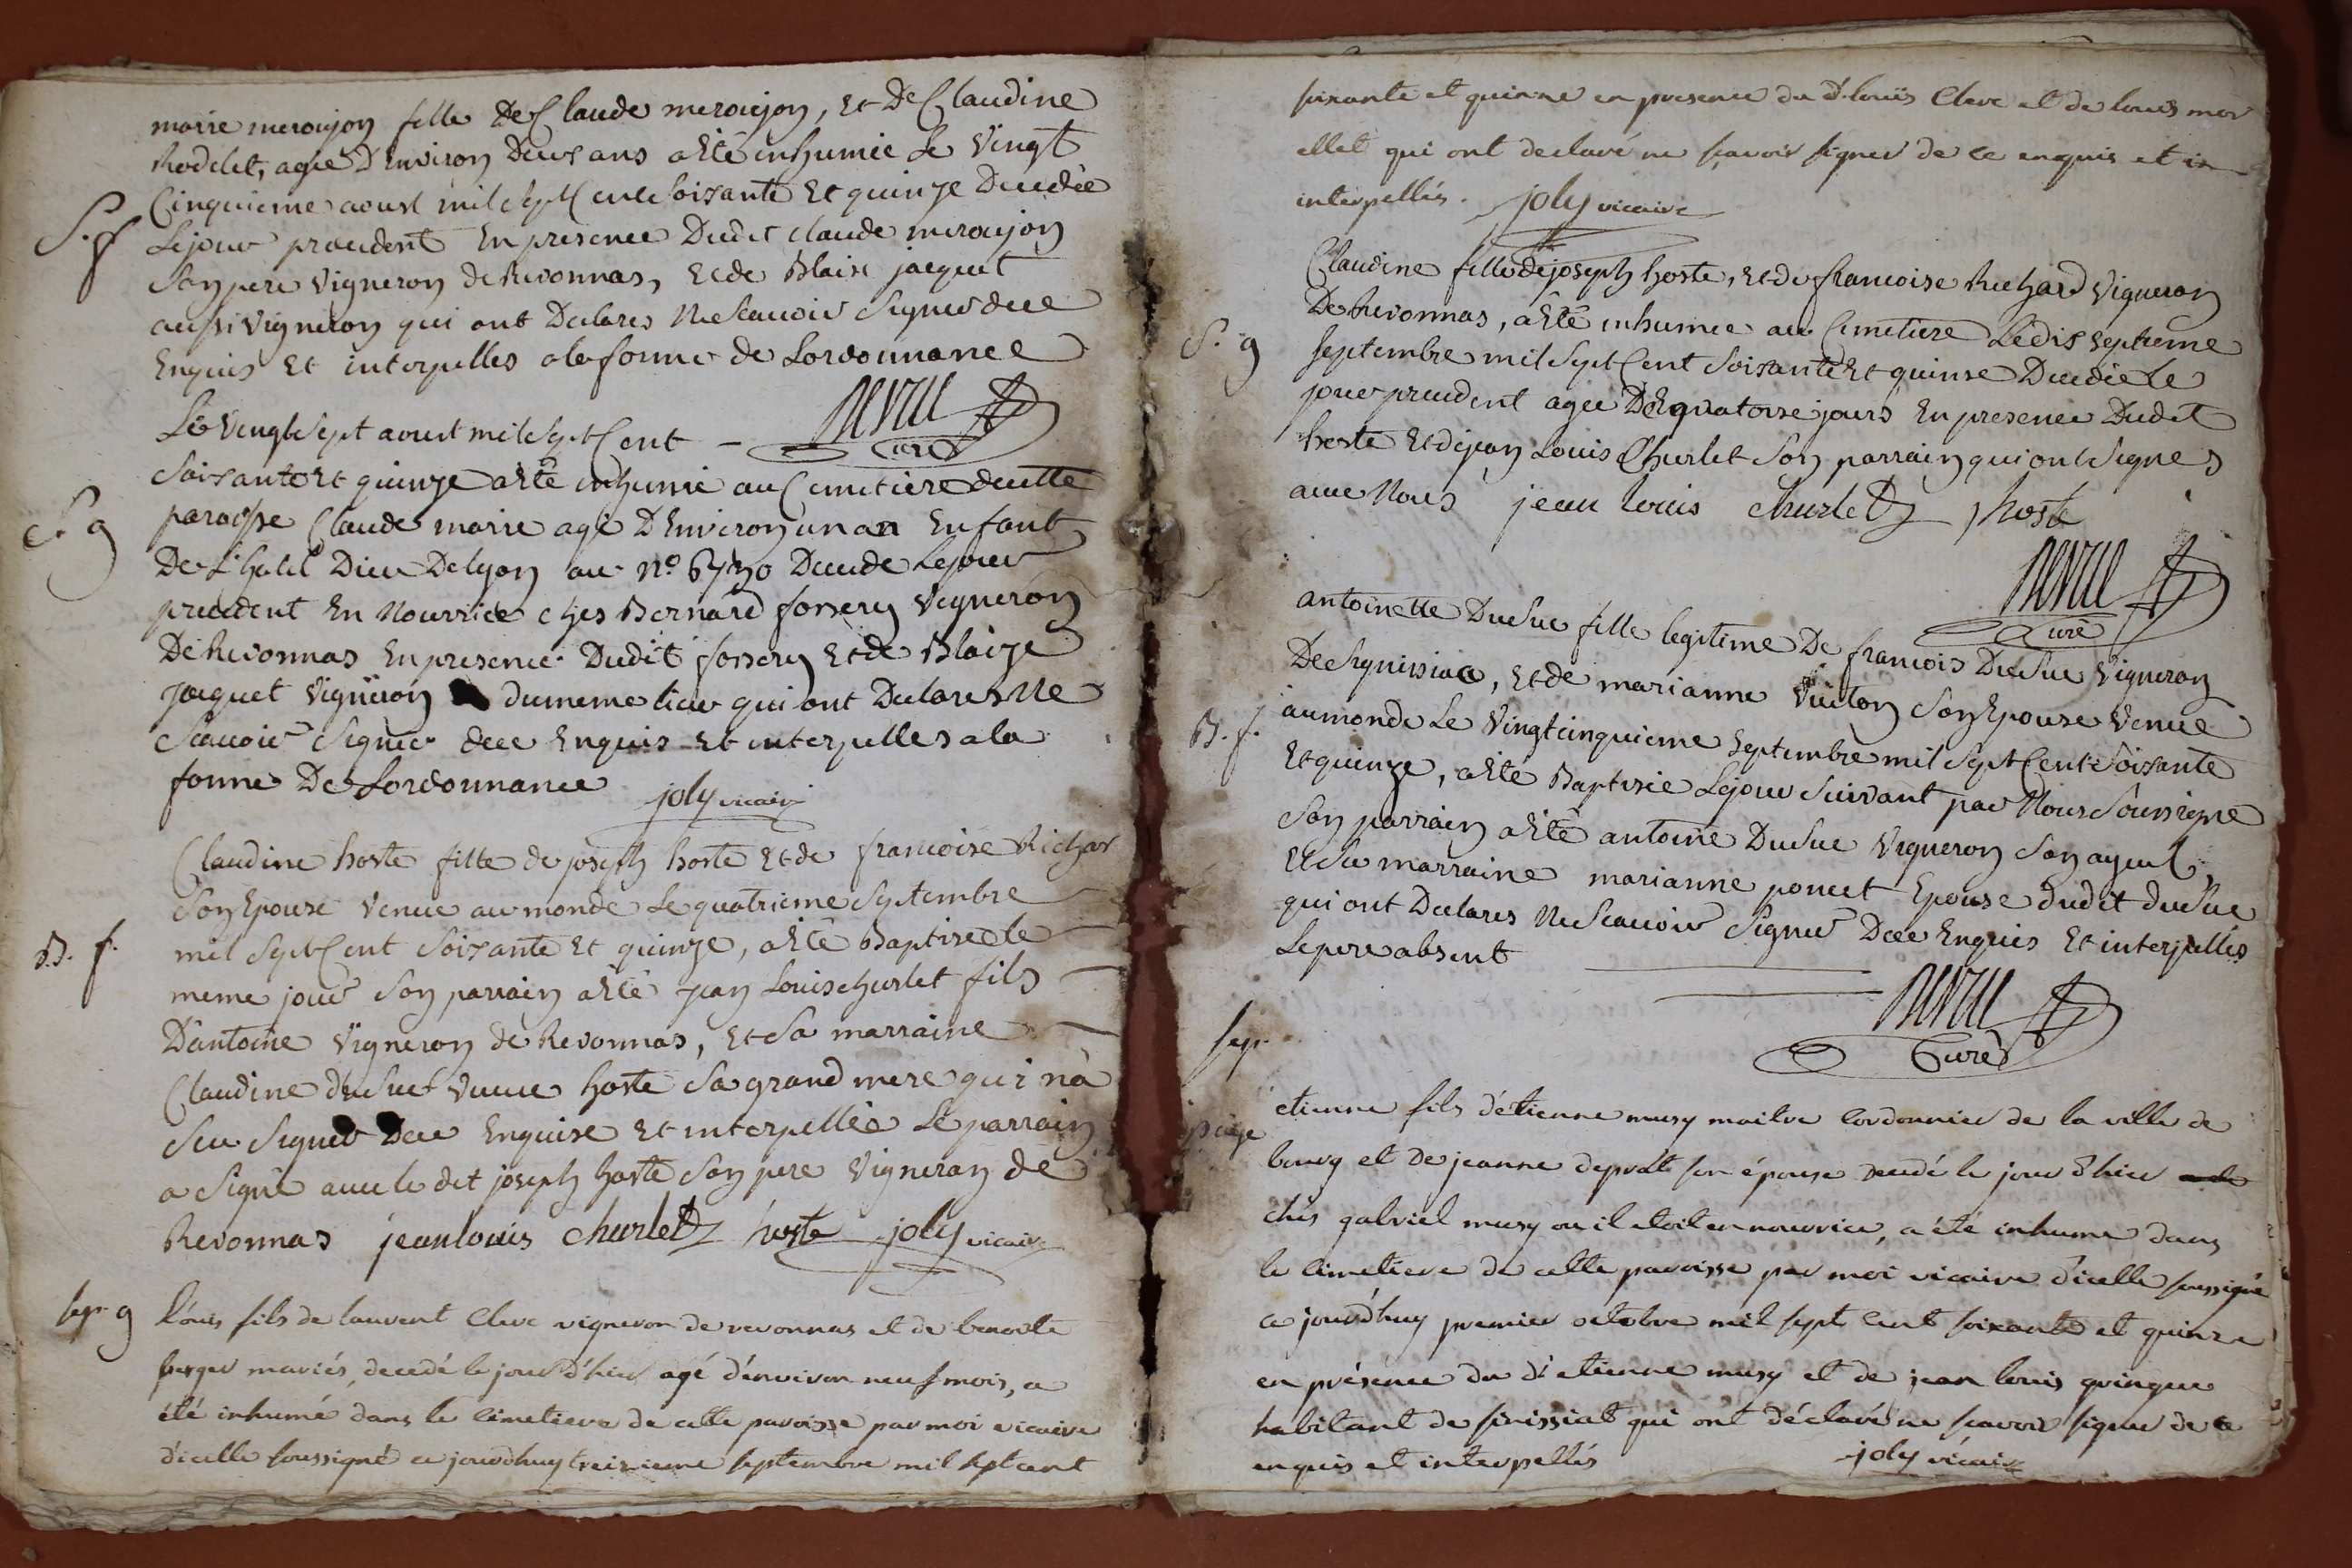 marie meroujon fille De Claude meroujon, Et De Claudine
Rodelet, agée D'Environ Deux ans a Eté inhumée Le Vingt
Cinquieme aoust mil Sept Cent Soisante Et quinze Decedée
S. f Le jour precedent En presence Dudit claude meroujon
Son pere Vigneron de Revonnas, Et de Blaise jacquet
aussi Vigneron qui ont Declares Ne Scauoir Signer de ce
Enquis Et interpelles a la forme de Lordonnance
Curé
Le Vingt Sept aoust mil Sept Cent
Soisante Et quinze a Eté inhumé au Cimetiere de cette
S. g paroisse Claude marie agé D'Environ un an Enfant
De L'hotel Dieu De lyon au n.º Decedé Le jour
precedent En Nourrice ches Bernard forrery Vigneron
De Revonnas En presence Dudit forrery Et de Blaize
jacquet Vigneron du meme lieu qui ont Declares Ne
Scauoir Signer de ce Enquis Et interpelles a la
forme De Lordonnance joly vicaire
Claudine hoste fille de joseph hoste Et de francoise Richar
Son Epouse Venue au monde Le quatrieme Septembre
B. f. mil Sept Cent Soisante Et quinze, a Eté Baptisée le
meme jour Son parrain a Eté jean Louis churlet fils
D'antoine Vigneron de Revonnas, Et Sa marraine
Claudine duSuc Veuue hoste Sa grand mere qui n'a
Sceu Signer De ce Enquise Et interpellée Le parrain
a Signé auec le dit joseph hoste Son pere Vigneron de
Revonnas jean louis churlet hoste joly vicaire
sep. g Louis fils de laurent Cleve vigneron de revonnas et de benoite
berger mariés, decedé le jour d'hier agé d'environ neuf mois, a
été inhumé dans le cimetiere de cette paroisse par moi vicaire
d'icelle soussigné ce jourd'huy treizieme septembre mil sept cent
soixante et quinze en presence du d.t louis Cleve et de louis mor
ellet qui ont declaré ne sçavoir signer de ce enquis et in
interpellés. joly vicaire
Claudine fille de joseph hoste, Et de francoise Richard Vigneron
De Revonnas, a Eté inhumée au Cimetiere Le dis Septieme
S. g Septembre mil Sept Cent Soisante Et quinse Decedée Le
jour precedent agée De quatorse jours En presence Dudit
hoste Et de jean Louis Churlet Son parrain qui ont Signes
auec Nous jean louis churlet j hoste
Curé
antoinette DuSuc fille legitime De francois DuSuc Vigneron
De Signissiac, Et de marianne Vuiton Son Epouse Venue
B. f. au monde Le Vingt cinquieme Septembre mil Sept Cent Soisante
Et quinze, a Eté Baptisée Le jour Suivant par Nous Soussigne
Son parrain a Eté antoine DuSuc Vigneron Son ayeul,
Et Sa marraine marianne poncet Epouse dudit duSuc
qui ont Declares Ne Scauoir Signer De ce Enquis Et interpelles
Le pere absent
Curé
sep.
etienne fils d'etienne musy maitre cordonnier de la ville de
bourg et de jeanne deprat son épouse decedé le jour d'hier
chés gabriel musy ou il etoit en nourrice, a été inhumé dans
le cimetiere de cette paroisse par moi vicaire d'icelle soussigné
ce jourd'huy premier octobre mil sept cent soixante et quinze
en présence du d.t etienne musy et de jean louis gringue
habitant de sinissiat qui ont déclaré ne scavoir signer de ce
enquis et interpellés joly vicaire